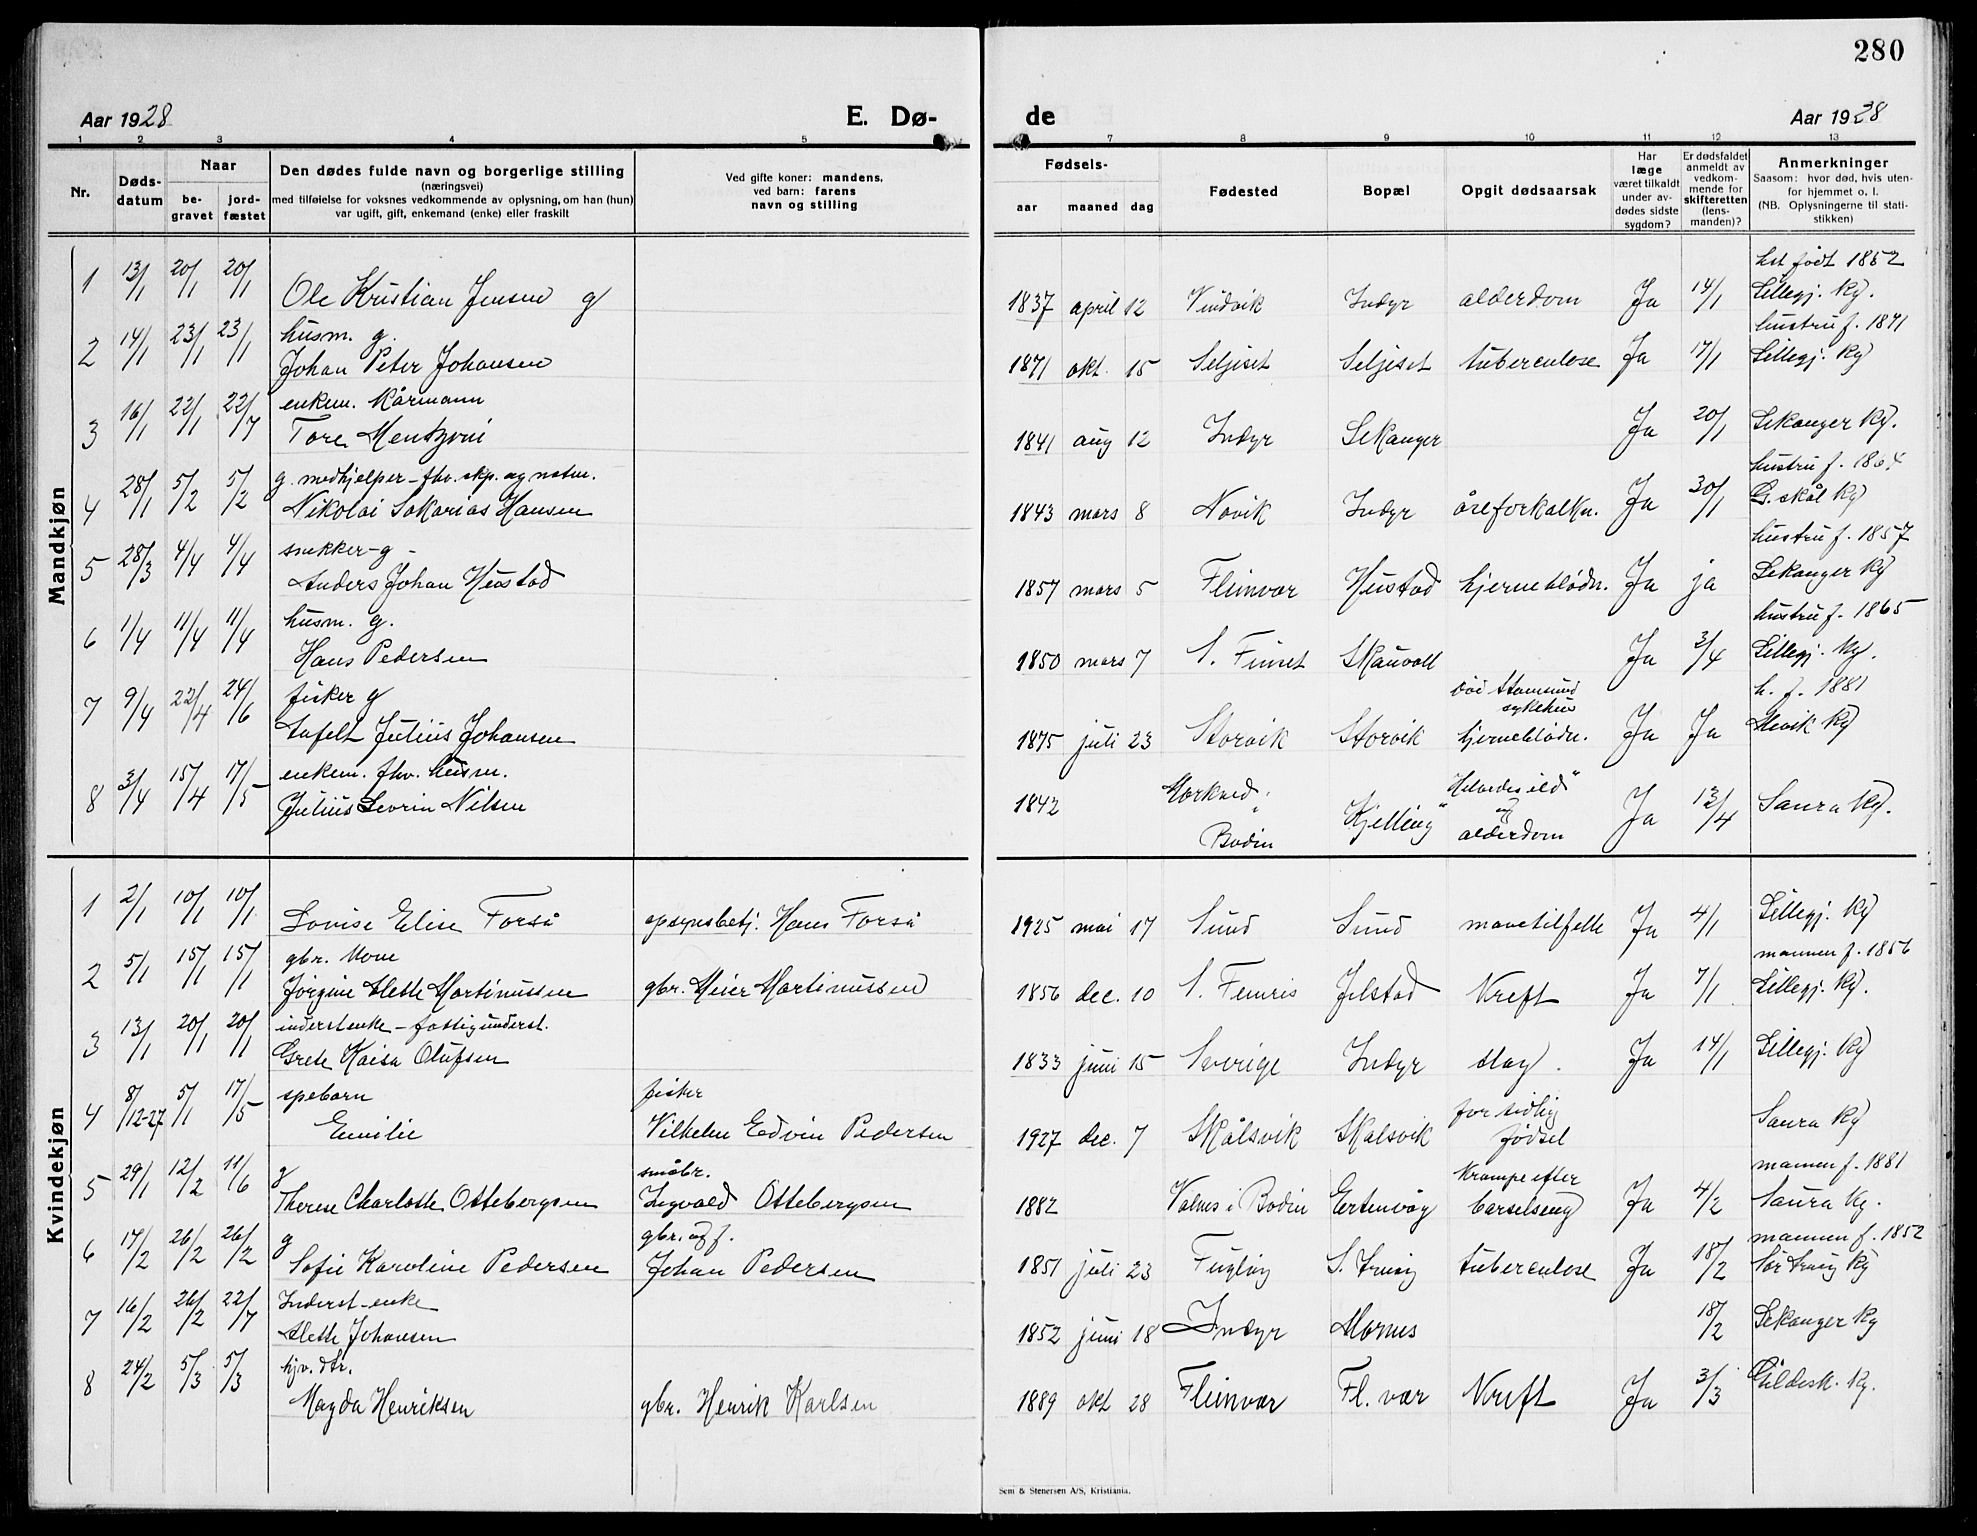 280
Aar 1928
E. Dø-
de
Aar 1928
1 2 3 4 5 7 8 9 10 11 12 13
Nr.
Døds-
datum
Naar
be-
gravet
jord-
fæstet
Den dødes fulde navn og borgerlige stilling
(næringsvei)
med tilføielse for voksnes vedkommende av oplysning, om han (hun)
var ugift, gift, enkemand (enke) eller fraskilt
Ved gifte koner: mandens,
ved barn: farens
navn og stilling
Fødsels-
aar maaned dag
Fødested
Bopæl
Opgit dødsaarsak
Har
læge
været tilkaldt
under av-
dødes sidste
sygdom?
Er dødsfaldet
anmeldt av
vedkom-
mende for
skifteretten
(lens-
manden)?
Anmerkninger
Saasom: hvor død, hvis uten-
for hjemmet o. l.
(NB. Oplysningerne til stati-
stikken)
Mandkjøn
hst født 1852
1 13/1 20/1 20/1 Ole Kristian Jensen g 1837 april 12 Vindvik Indyr alderdom Ja 14/1 Lillegj. kg.
husm. g. hustru f. 1871
2 14/1 23/1 23/1 Johan Peter Johansen 1871 okt. 15 Seljeset Seljeset tuberculose Ja 17/1 Lillegj. kg
enkem. kårmann
3 16/1 22/1 22/7 Tore Mentzoni 1841 aug 12 Indyr Sekanger Ja 20/1 Sekanger kg.
g. medhjelper - fhv. skp. og notm. hustru f. 1864
4 28/1 5/2 5/2 Nikolai Sakarias Hansen 1843 mars 8 Novik Indyr åreforkalkn. Ja 30/1 G.skål kg
snekker - g - hustru f. 1857
5 28/3 4/4 4/4 Anders Johan Heustad 1857 mars 5 Fleinvær Heustad hjerneblødn. Ja ja Sekanger kg
husm. g. hustru f. 1865
6 1/4 11/4 11/4 Hans Pedersen 1850 mars 7 N. Finset Skauvoll Ja 3/4 Lillegj. kg.
fisker g død Stamsund sykehus h. f. 1881
7 9/4 22/4 24/6 Anfelt Julius Johansen 1875 juli 23 Storvik Storvik hjerneblødn. Ja Ja Mevik kg
enkem. fhv. husm. "Helvedesild"
8 3/4 15/4 17/5 Julius Severin Nilsen 1842 Morkved i Bodin Kjelling og alderdom Ja 13/4 Saura kg.
Kvindekjøn
1 2/1 10/1 10/1 Lovise Elise Forså opsynsbetj. Hans Forså 1925 mai 17 Sund Sund mavetilfelle Ja 4/1 Lillegj. kg
gbr. kone mannen f. 1856
2 5/1 15/1 15/1 Jørgine Alette Martinussen gbr. Meier Martinussen 1856 dec. 10 N. Femris Jelstad Kreft Ja 7/1 Lillegj. kg.
inderstenke - fattigunderst.
3 13/1 20/1 20/1 Grete Kaisa Olufsen 1833 juni 15 Sverige Indyr slag. Ja 14/1 Lillegj. kg
spebarn fisker for tidlig
4 8/12-27 5/1 17/5 Emilie Vilhelm Edvin Pedersen 1927 dec. 7 Skålsvik Skalsvik fødsel Saura kg
g småbr. Krampe efter mannen f. 1881
5 29/1 12/2 11/6 Therese Charlotte Ottebergsen Ingvald Ottebergsen 1882 Valnes i Bodin Ertenvåg barselseng Ja 4/2 Saura kg.
g gbr. og f. mannen f. 1852
6 17/2 26/2 26/2 Sofie Karoline Pedersen Johan Pedersen 1851 juli 23 Fugløy S. Arnøy tuberculose Ja 18/2 Sør Arnøy kg
Inderst-enke
7 16/2 26/2 22/7 Alette Johansen 1852 juni 18 Indyr Mornes 18/2 Sekanger kg
hjv. dtr.
8 24/2 5/3 5/3 Magda Henriksen gbr. Henrik Karlsen 1889 okt 28 Fleinvær Fl. vær Kreft Ja 3/3 Gildesk. kg.
Sem & Stenersen A/S, Kristiania.